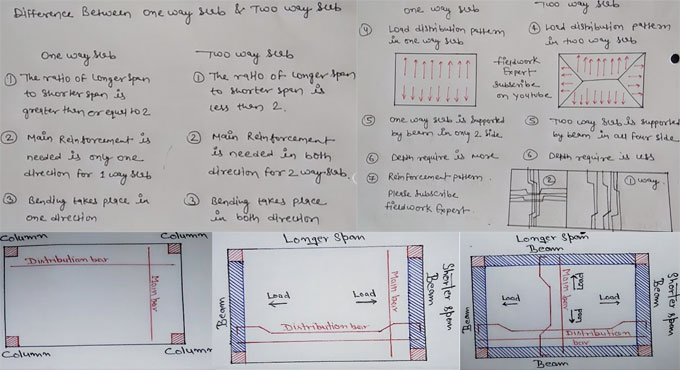 Difference Between one way slab & Two way slab
One way slab
① The ratio of Longer span
to shorter span is
greater then or equal to 2
② Main Reinforcement is
needed is only one
direction for 1 way slab
③ Bending takes place in
one direction
Two way slab
① The ratio of longer span
to shorter span is
less then 2.
② Main Reinforcement
is needed in both
direction for 2 way slab.
③ Bending takes place
in both direction
one way slab
④ Load distribution pattern
in one way slab
fieldwork
Expert
subscribe
on youtube
⑤ one way slab is supported
by beam in only 2 side
⑥ Depth require is more
⑦ Reinforcement pattern.
Please subscribe
fieldwork Expert.
Two way slab
④ Load distribution pattern
in two way slab
⑤ Two way slab is supported
by beam in all four side
⑥ Depth require is less
②
① way.
Column
Column
Distribution bar
Main bar
Column
Column
Longer Span
Beam
Load
Load
Main bar
Distribution bar
Beam
Shorter span
Longer Span
Beam
Beam
Load
Main bar
Load
Load
Load
Distribution
bar
Beam
Shorter span
Beam